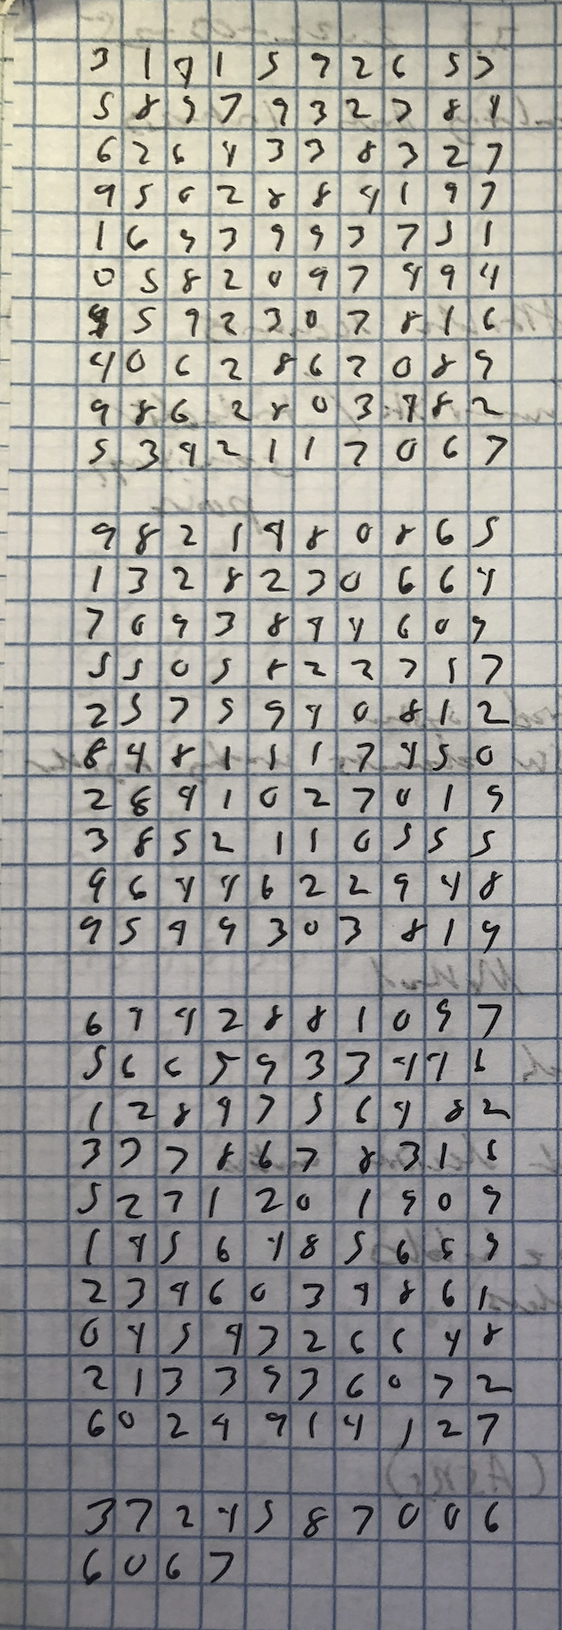 3 1 4 1 5 9 2 6 5 3
5 8 9 7 9 3 2 3 8 4
6 2 6 4 3 3 8 3 2 7
9 5 0 2 8 8 4 1 9 7
1 6 9 3 9 9 3 7 5 1
0 5 8 2 0 9 7 4 9 4
4 5 9 2 3 0 7 8 1 6
4 0 6 2 8 6 2 0 8 9
9 8 6 2 8 0 3 4 8 2
5 3 4 2 1 1 7 0 6 7
9 8 2 1 4 8 0 8 6 5
1 3 2 8 2 3 0 6 6 4
7 0 9 3 8 4 4 6 0 9
5 5 0 5 8 2 2 3 1 7
2 5 3 5 9 4 0 8 1 2
8 4 8 1 1 1 7 4 5 0
2 8 4 1 0 2 7 0 1 9
3 8 5 2 1 1 0 5 5 5
9 6 4 4 6 2 2 9 4 8
9 5 4 9 3 0 3 8 1 9
6 4 4 2 8 8 1 0 9 7
5 6 6 5 9 3 3 4 4 6
1 2 8 4 7 5 6 4 8 2
3 3 7 8 6 7 8 3 1 6
5 2 7 1 2 0 1 9 0 9
1 4 5 6 4 8 5 6 6 9
2 3 4 6 0 3 4 8 6 1
0 4 5 4 3 2 6 6 4 8
2 1 3 3 9 3 6 0 7 2
6 0 2 4 9 1 4 1 2 7
3 7 2 4 5 8 7 0 0 6
6 0 6 3